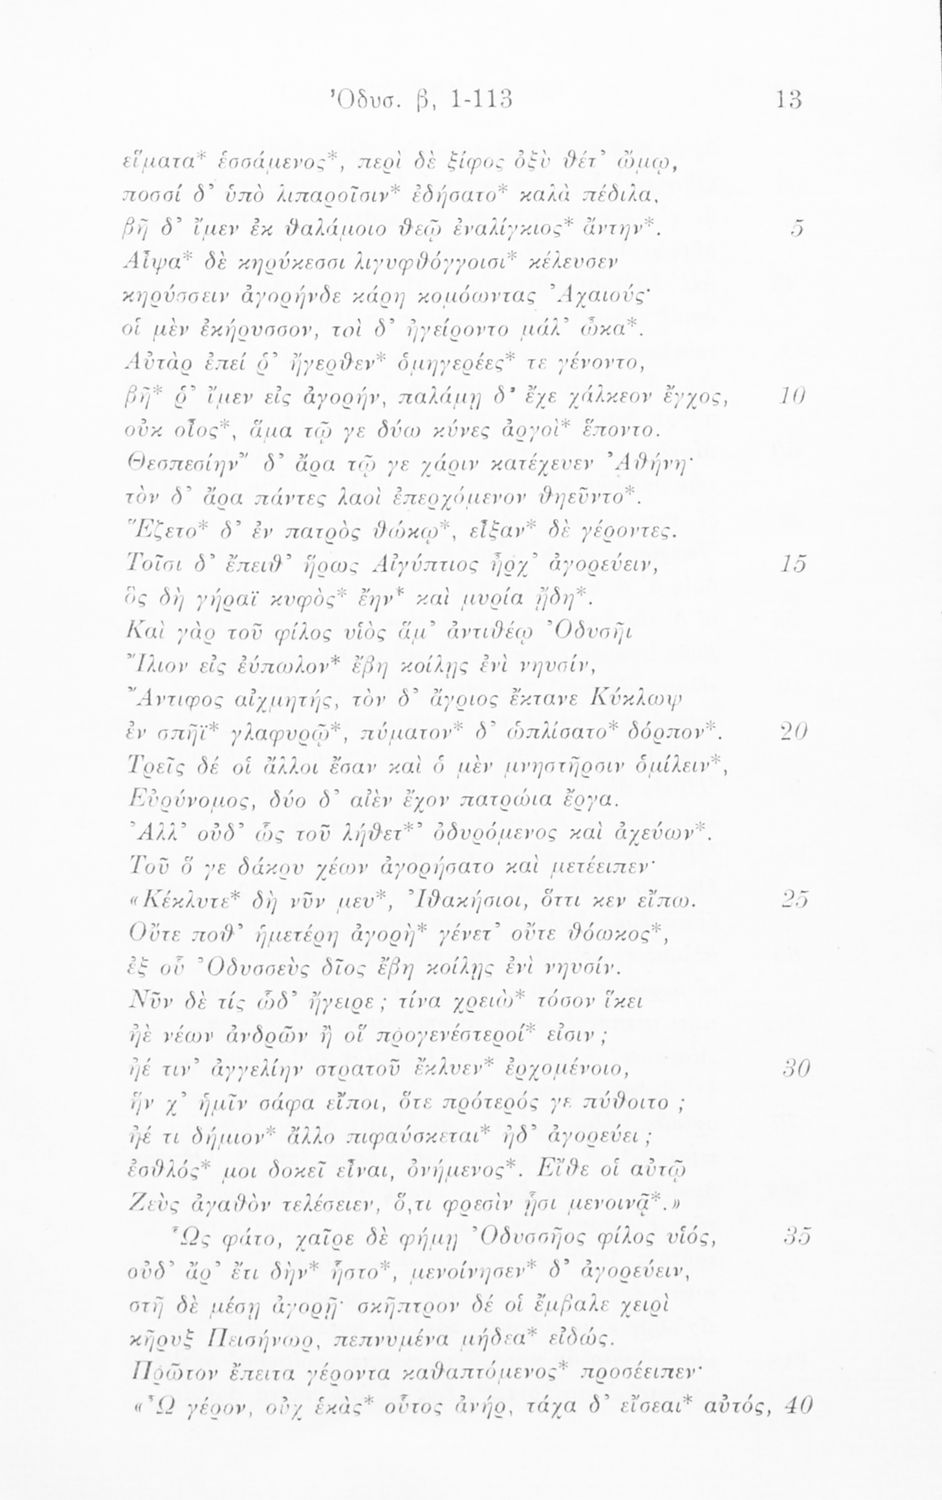 Ὀδυσ. β, 1-113 13
εἵματα* ἑσσάμενος*, περὶ δὲ ξίφος ὀξὺ θέτ' ὤμῳ,
ποσσί δ' ὑπὸ λιπαροῖσιν* ἐδήσατο* καλὰ πέδιλα,
βῆ δ' ἴμεν ἐκ θαλάμοιο θεῷ ἐναλίγκιος* ἄντην*. 5
Αἶψα* δὲ κηρύκεσσι λιγυφθόγγοισι* κέλευσεν
κηρύσσειν ἀγορήνδε κάρη κομόωντας Ἀχαιούς·
οἱ μὲν ἐκήρυσσον, τοὶ δ' ἠγείροντο μάλ' ὦκα*.
Αὐτὰρ ἐπεί ῥ' ἤγερθεν* ὁμηγερέες* τε γένοντο,
βῆ* ῥ' ἴμεν εἰς ἀγορήν, παλάμῃ δ' ἔχε χάλκεον ἔγχος, 10
οὐκ οἶος*, ἅμα τῷ γε δύω κύνες ἀργοὶ* ἕποντο.
Θεσπεσίην* δ' ἄρα τῷ γε χάριν κατέχευεν Ἀθήνη·
τὸν δ' ἄρα πάντες λαοὶ ἐπερχόμενον θηεῦντο*.
Ἕζετο* δ' ἐν πατρὸς θώκῳ*, εἶξαν* δὲ γέροντες.
Τοῖσι δ' ἔπειθ' ἥρως Αἰγύπτιος ἦρχ' ἀγορεύειν, 15
ὃς δὴ γήραϊ κυφὸς* ἔην* καὶ μυρία ᾔδη*.
Καὶ γὰρ τοῦ φίλος υἱὸς ἅμ' ἀντιθέῳ Ὀδυσῆι
Ἴλιον εἰς εὔπωλον* ἔβη κοίλῃς ἐνὶ νηυσίν,
Ἄντιφος αἰχμητής, τὸν δ' ἄγριος ἔκτανε Κύκλωψ
ἐν σπῆϊ* γλαφυρῷ*, πύματον* δ' ὡπλίσατο* δόρπον*. 20
Τρεῖς δέ οἱ ἄλλοι ἔσαν καὶ ὁ μὲν μνηστῆρσιν ὁμίλειν*,
Εὐρύνομος, δύο δ' αἰὲν ἔχον πατρώια ἔργα.
Ἀλλ' οὐδ' ὧς τοῦ λήθετ*' ὀδυρόμενος καὶ ἀχεύων*.
Τοῦ ὅ γε δάκρυ χέων ἀγορήσατο καὶ μετέειπεν·
«Κέκλυτε* δὴ νῦν μευ*, Ἰθακήσιοι, ὅττι κεν εἴπω. 25
Οὔτε ποθ' ἡμετέρη ἀγορὴ* γένετ' οὔτε θόωκος*,
ἐξ οὗ Ὀδυσσεὺς δῖος ἔβη κοίλῃς ἐνὶ νηυσίν.
Νῦν δὲ τίς ὧδ' ἤγειρε; τίνα χρειὼ* τόσον ἵκει
ἠὲ νέων ἀνδρῶν ἢ οἳ προγενέστεροί* εἰσιν;
ἠέ τιν' ἀγγελίην στρατοῦ ἔκλυεν* ἐρχομένοιο, 30
ἥν χ' ἡμῖν σάφα εἴποι, ὅτε πρότερός γε πύθοιτο;
ἦέ τι δήμιον* ἄλλο πιφαύσκεται* ἠδ' ἀγορεύει;
ἐσθλός* μοι δοκεῖ εἶναι, ὀνήμενος*. Εἴθε οἱ αὐτῷ
Ζεὺς ἀγαθὸν τελέσειεν, ὅ,τι φρεσὶν ᾗσι μενοινᾷ*.»
Ὣς φάτο, χαῖρε δὲ φήμῃ Ὀδυσσῆος φίλος υἱός, 35
οὐδ' ἄρ' ἔτι δὴν* ἧστο*, μενοίνησεν* δ' ἀγορεύειν,
στῆ δὲ μέσῃ ἀγορῇ· σκῆπτρον δέ οἱ ἔμβαλε χειρὶ
κῆρυξ Πεισήνωρ, πεπνυμένα μήδεα* εἰδώς.
Πρῶτον ἔπειτα γέροντα καθαπτόμενος* προσέειπεν·
«Ὦ γέρον, οὐχ ἑκὰς* οὗτος ἀνήρ, τάχα δ' εἴσεαι* αὐτός, 40